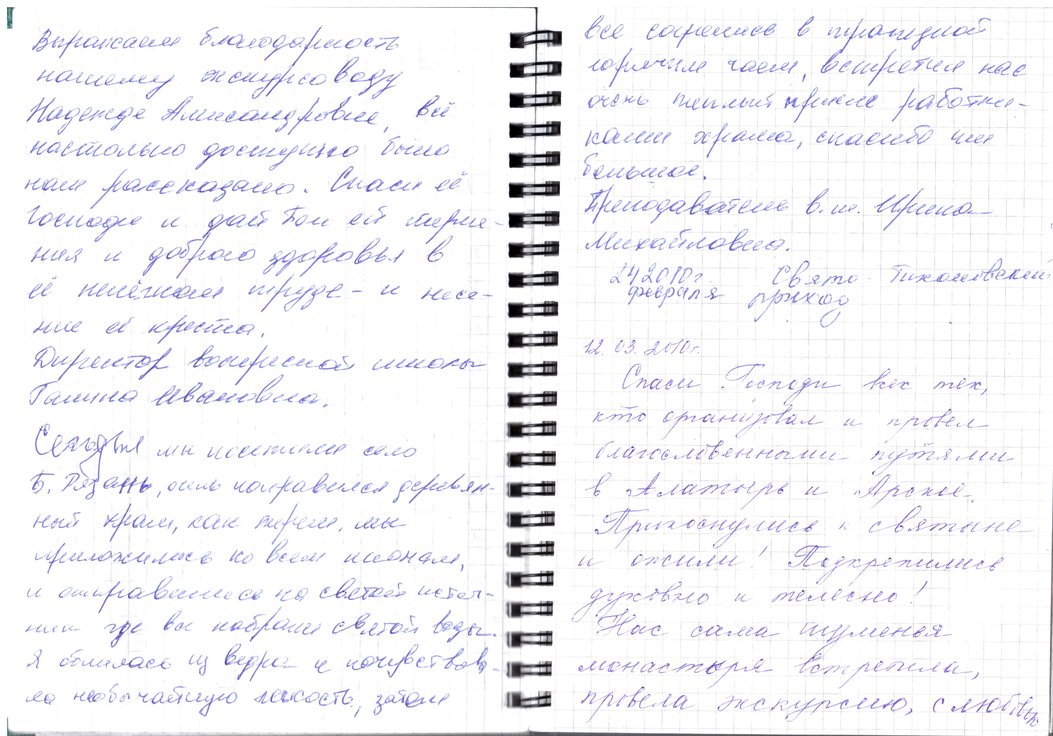 Выражаем благодарность
нашему экскурсоводу
Надежде Александровне, всё
настолько доступно было
нам рассказано. Спаси её
Господи и дай Бог ей терпе-
ния и доброго здоровья в
её нелёгком труде - и несе-
ние её креста.
Директор воскресной школы
Галина Ивановна.
Сегодня мы посетили село
Б. Рязань, очень понравился деревян-
ный храм, как терем, мы
приложились ко всем иконам,
и отправились на святой источ-
ник где все набрали святой воды.
Я облилась из ведра и почувствова-
ла необычайную легкость, затем
все согрелись в трапезной
горячим чаем, встретил нас
очень теплый прием работни-
ками храма, спасибо им
большое.
Преподаватель в.ш. Ирина
Михайловна.
24 2010г Свято-Тихоновский
февраля приход
12.03.2010г.
Спаси Господи всех тех,
кто организовал и провел
благословенными путями
в Алатырь и Арское.
Прикоснулись к святыне
и ожили! Подкрепились
духовно и телесно!
Нас сама игуменья
монастыря встретила,
провела экскурсию, с любовью